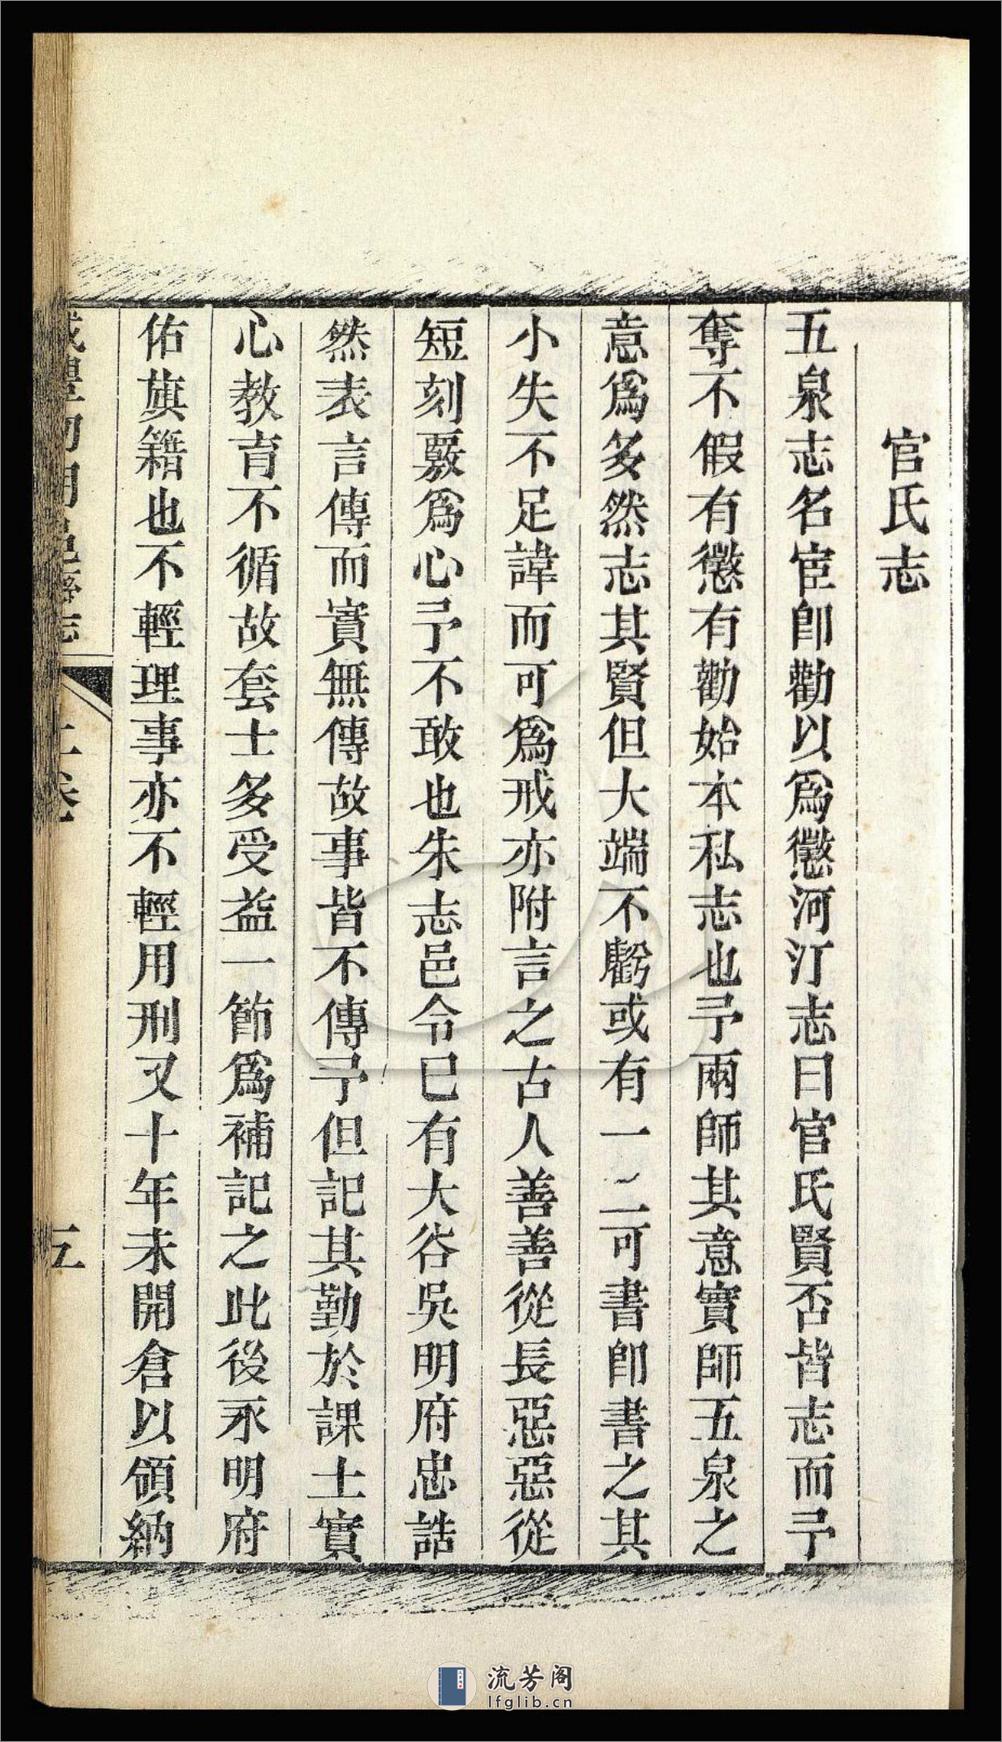 官氏志
五泉志名宦卽勸以爲懲河汀志曰官氏賢否皆志而予
奪不假有懲有勸始本私志也予兩師其意實師五泉之
意爲多然志其賢但大端不虧或有一二可書卽書之其
小失不足諱而可爲戒亦附言之古人善善從長惡惡從
短刻覈爲心予不敢也朱志邑令已有大谷吳明府忠誥
然表言傳而實無傳故事皆不傳予但記其勤於課士實
心教育不循故套士多受益一節爲補記之此後承明府
佑旗籍也不輕理事亦不輕用刑又十年未開倉以領納
咸豐初朝邑縣志
上卷
五
流芳阁
lfglib.cn